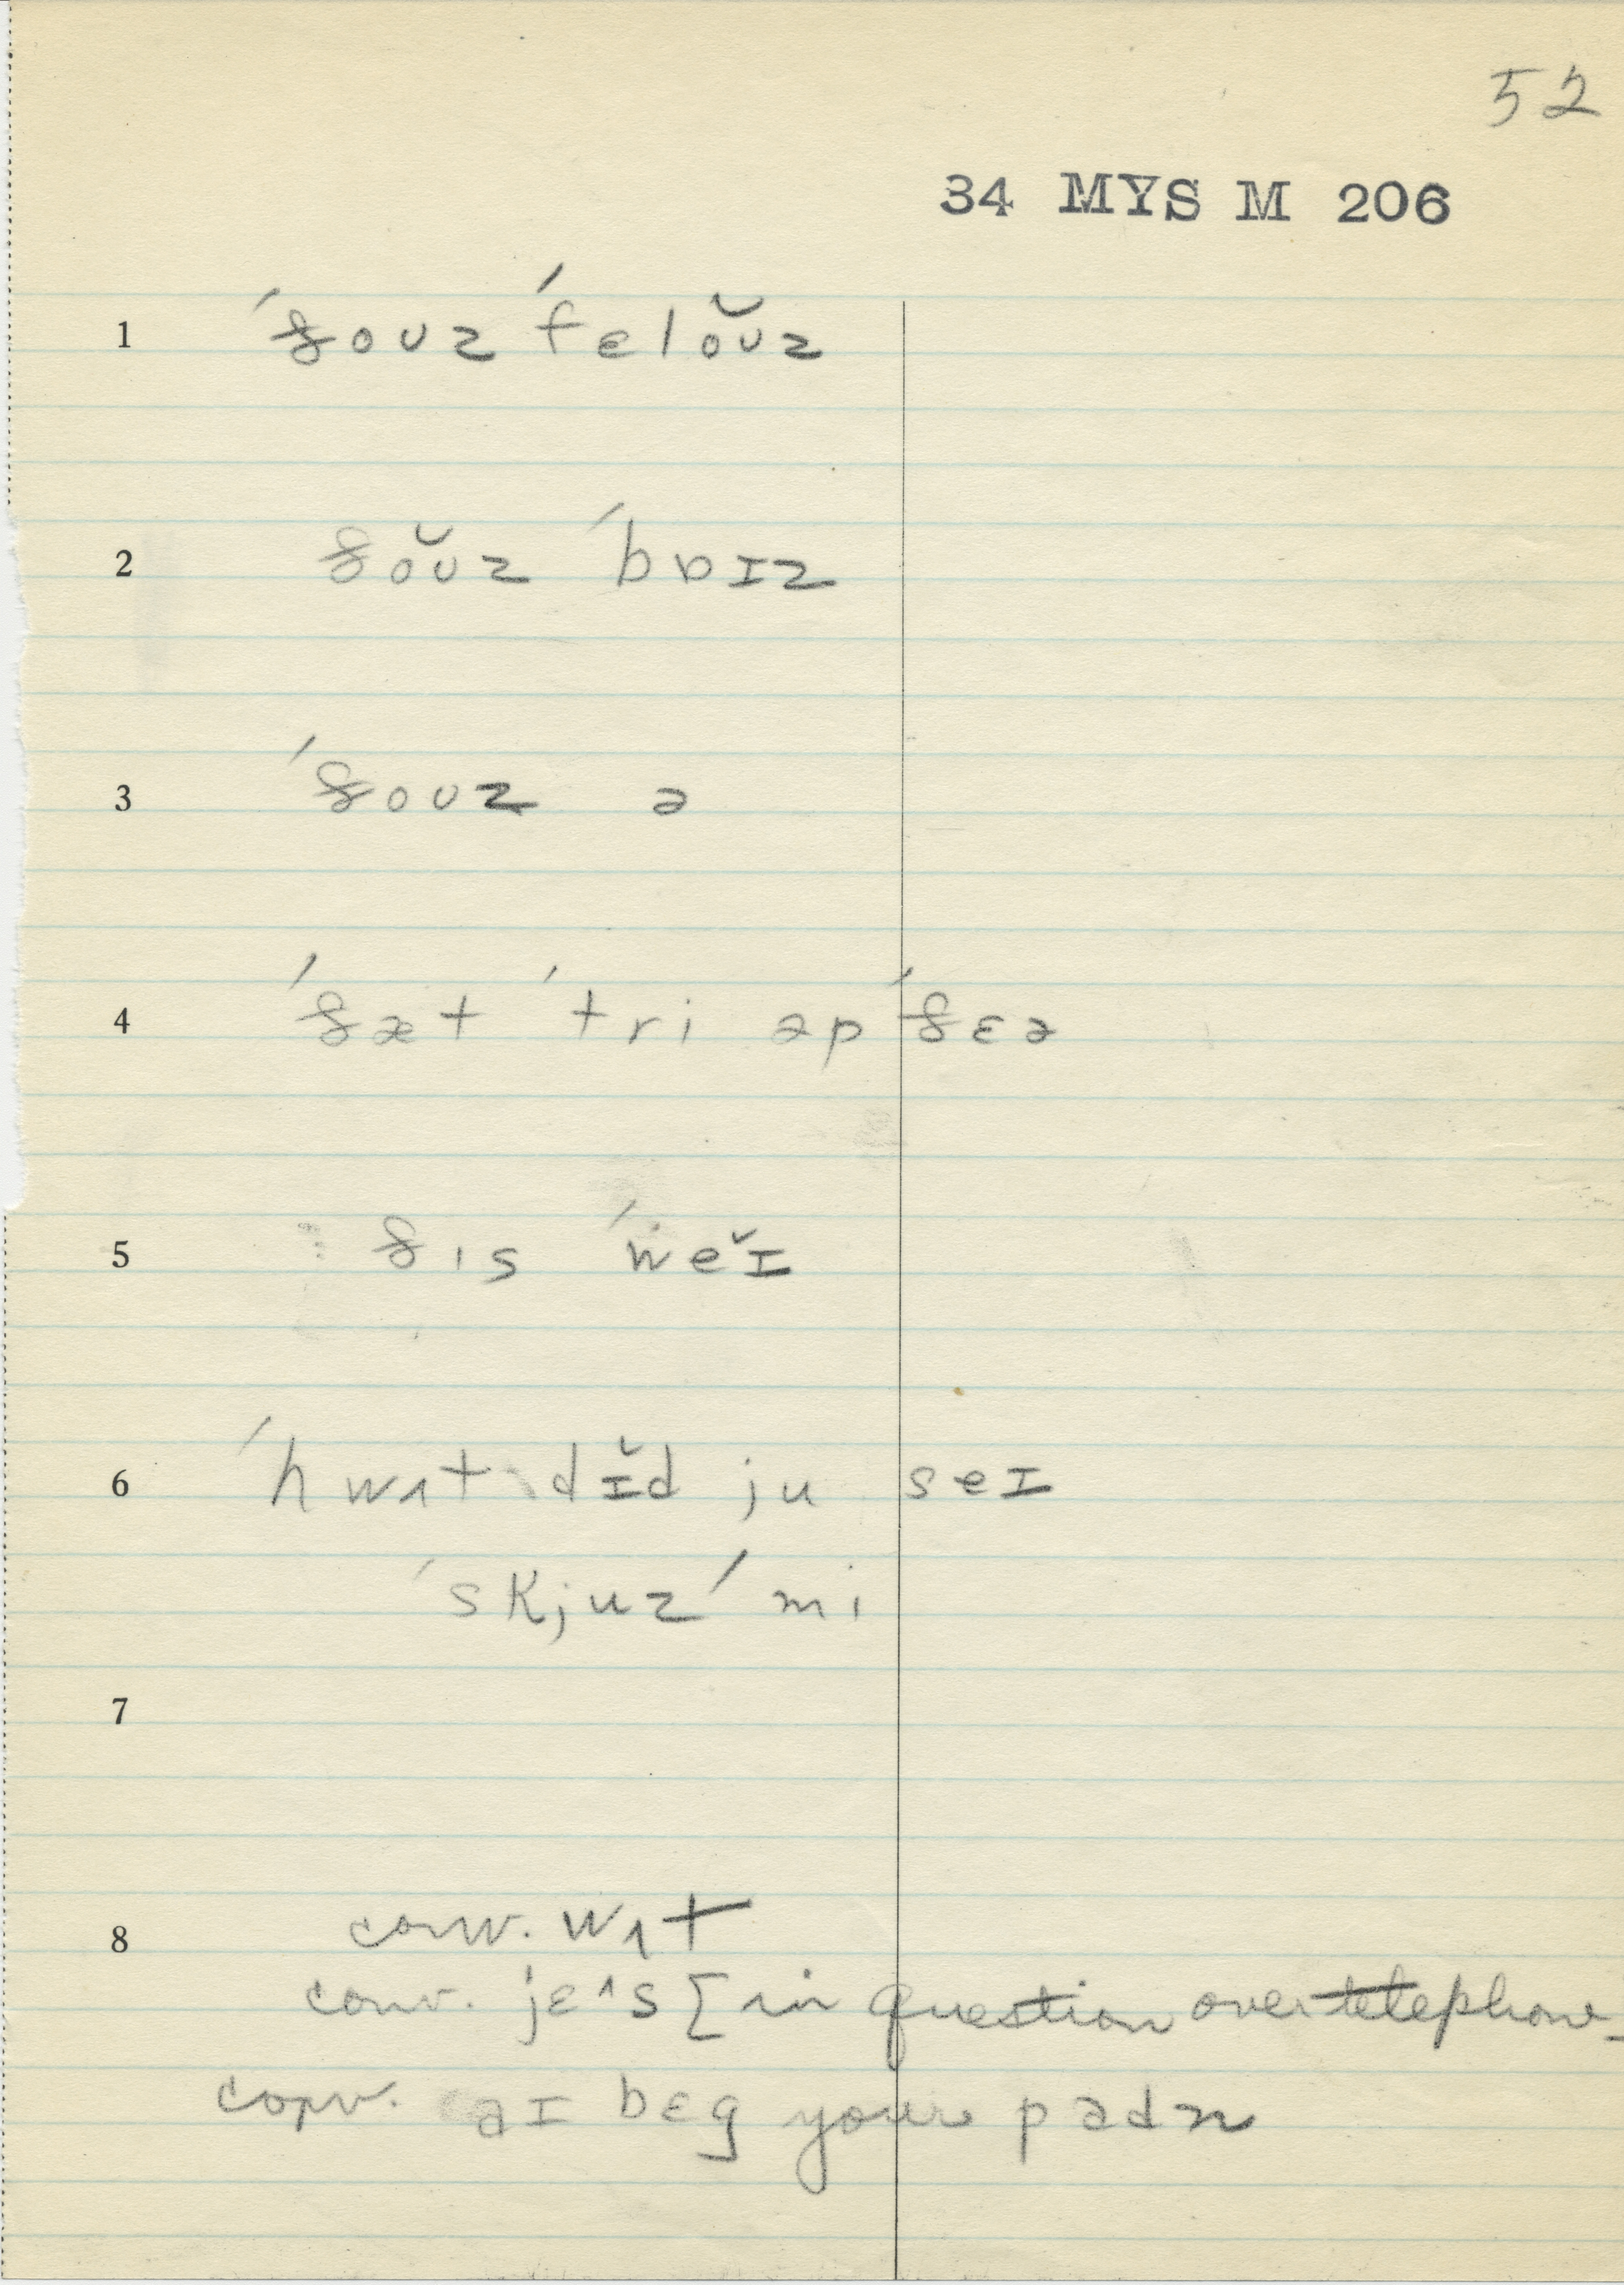 52
34 MYS M 206
1 ´ðoʊz ´fɛlŏʊz
2 ðŏʊz ´bɒɪz
3 ´ðoʊz ə
4 ´ðæt ´tri əp ´ðɛə
5 ðis ´weĭ
6 ´hwʌt dɪ̆d ju seɪ
´skjuz ´mi
7
8 conv. wʌt
conv. jɛˆs [in question over telephone_
conv. aɪ bɛg your padn